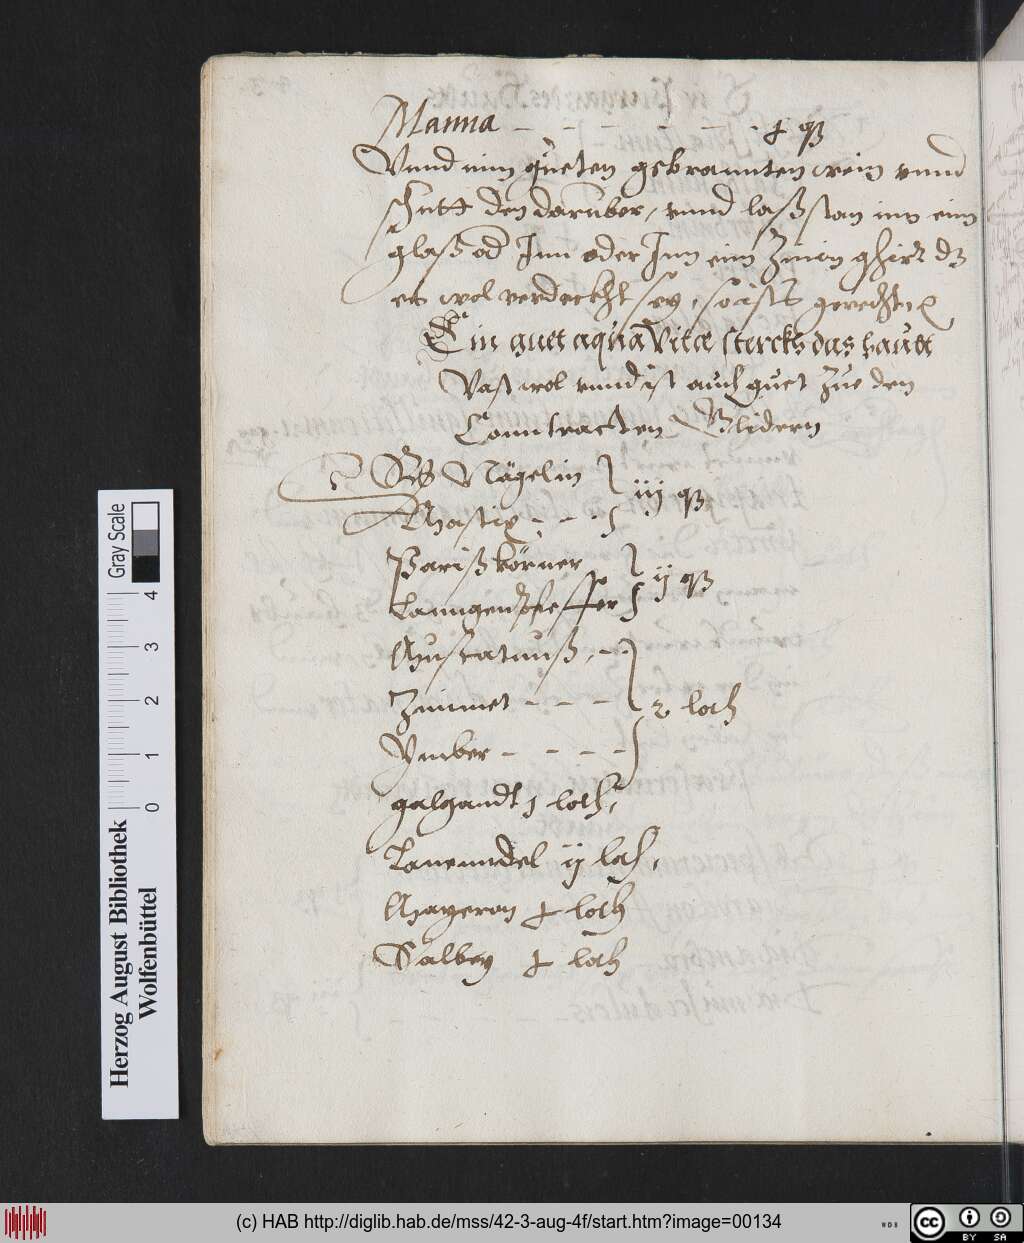 Manna - - - - - - ꝭ qß
Vnnd nim gueten gebrannten wein vnnd
schutt den darüber, vnnd laß stan inn eim
glaß od Inn oder Inn eim Zinin gschirr dz
es wol verdeckht sey, so ists gerecht
Ein guet aqua Vitæ sterckh das haubt
Vast wol vnnd ist auch guet Zue den
Conntracten Glidern
Rec Nägelin
Mastix - - - iiij qß
Parißkörner
Lanngen pfeffer ij qß
Muscatnuß - -
Zimmet - - - - 2 loth
Ymber - - - - -
galgandt j loth,
Lauenndel ij loth,
Mayeron ꝭ loth
Salbey ꝭ loth
Gray Scale
0 1 2 3 4
Herzog August Bibliothek
Wolfenbüttel
(c) HAB http://diglib.hab.de/mss/42-3-aug-4f/start.htm?image=00134
WDB
cc BY SA